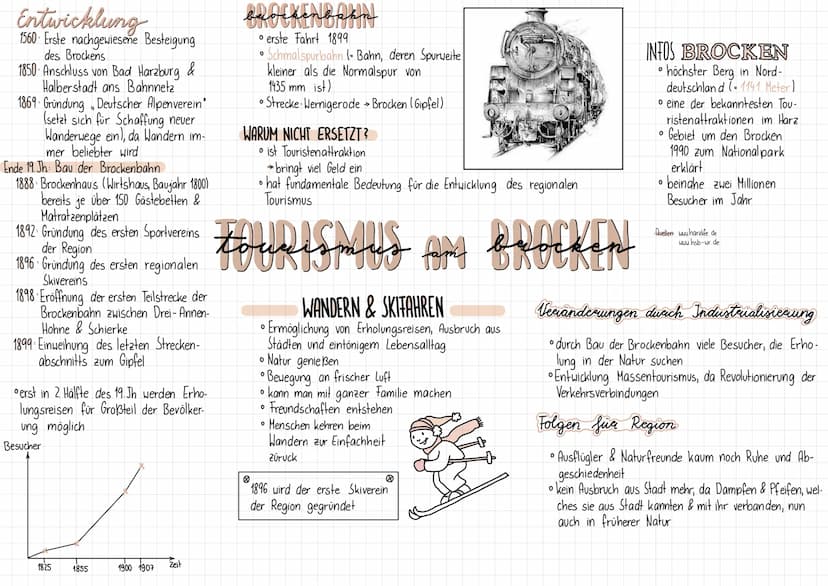 Entwicklung
1560· Erste nachgewiesene Besteigung
des Brockens
1850· Anschluss von Bad Harzburg &
Halberstadt ans Bahnnetz
1869· Gründung „Deutscher Alpenverein"
(setzt sich für Schaffung neuer
Wanderwege ein), da Wandern im-
mer beliebter wird
Ende 19. Jh: Bau der Brockenbahn
1888· Brockenhaus (Wirtshaus, Baujahr 1800)
bereits je über 150 Gästebetten &
Matratzenplätzen
1892· Gründung des ersten Sportvereins
der Region
1896· Gründung des ersten regionalen
Skivereins
1898· Eröffnung der ersten Teilstrecke der
Brockenbahn zwischen Drei-Annen-
Hohne & Schierke
1899· Einweihung des letzten Strecken-
abschnitts zum Gipfel
° erst in 2 Hälfte des 19. Jh werden Erho-
lungsreisen für Großteil der Bevölker-
ung möglich
Besucher
1825 1855 1900 1907 Zeit
BROCKENBAHN
brockenbahn
° erste Fahrt 1899
° Schmalspurbahn (= Bahn, deren Spurweite
kleiner als die Normalspur von
1435 mm ist)
° Strecke: Wernigerode → Brocken (Gipfel)
WARUM NICHT ERSETZT?
° ist Touristenattraktion
→ bringt viel Geld ein
° hat fundamentale Bedeutung für die Entwicklung des regionalen
Tourismus
INFOS BROCKEN
° höchster Berg in Nord-
deutschland (= 1141 Meter)
° eine der bekanntesten Tou-
ristenattraktionen im Harz
° Gebiet um den Brocken
1990 zum Nationalpark
erklärt
° beinahe zwei Millionen
Besucher im Jahr
Quellen: www.harzlife.de
TOURISMUS AM BROCKEN
tourismus am brocken
WANDERN & SKIFAHREN
° Ermöglichung von Erholungsreisen, Ausbruch aus
Städten und eintönigem Lebensalltag
° Natur genießen
° Bewegung an frischer Luft
° kann man mit ganzer Familie machen
° Freundschaften entstehen
° Menschen kehren beim
Wandern zur Einfachheit
zurück
1896 wird der erste Skiverein
der Region gegründet
Veränderungen durch Industrialisierung
° durch Bau der Brockenbahn viele Besucher, die Erho-
lung in der Natur suchen
° Entwicklung Massentourismus, da Revolutionierung der
Verkehrsverbindungen
Folgen für Region
° Ausflügler & Naturfreunde kaum noch Ruhe und Ab-
geschiedenheit
° kein Ausbruch aus Stadt mehr, da Dampfen & Pfeifen, wel-
ches sie aus Stadt kannten & mit ihr verbanden, nun
auch in früherer Natur